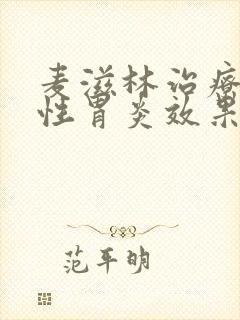 麦滋林治疗
性胃炎效果
范平明